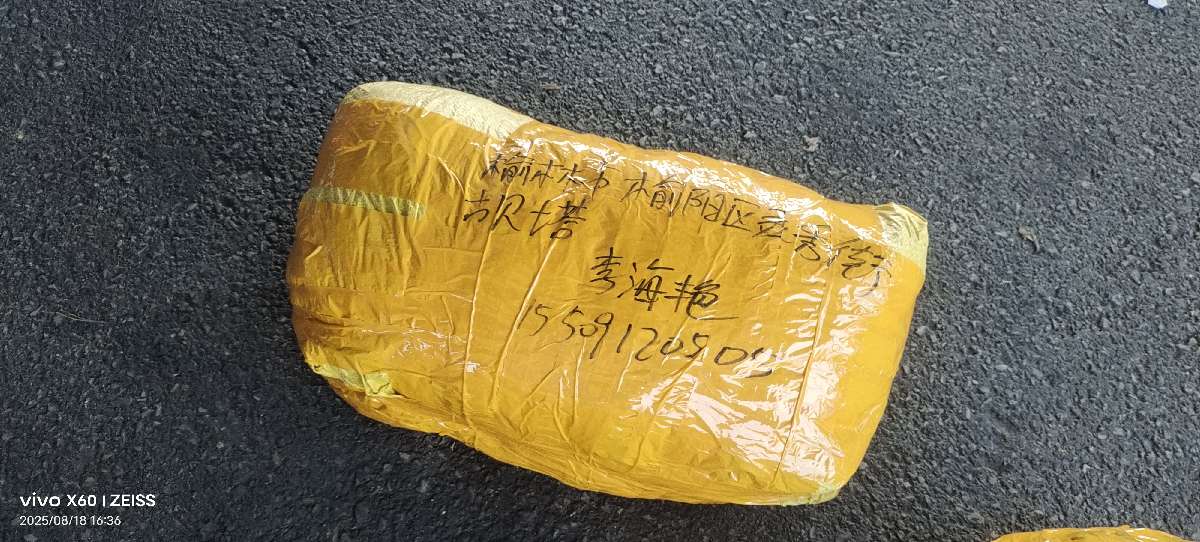 榆林市榆阳区
古贝塔
李海艳
15509120508
vivo X60 | ZEISS
2025/08/18 16:36